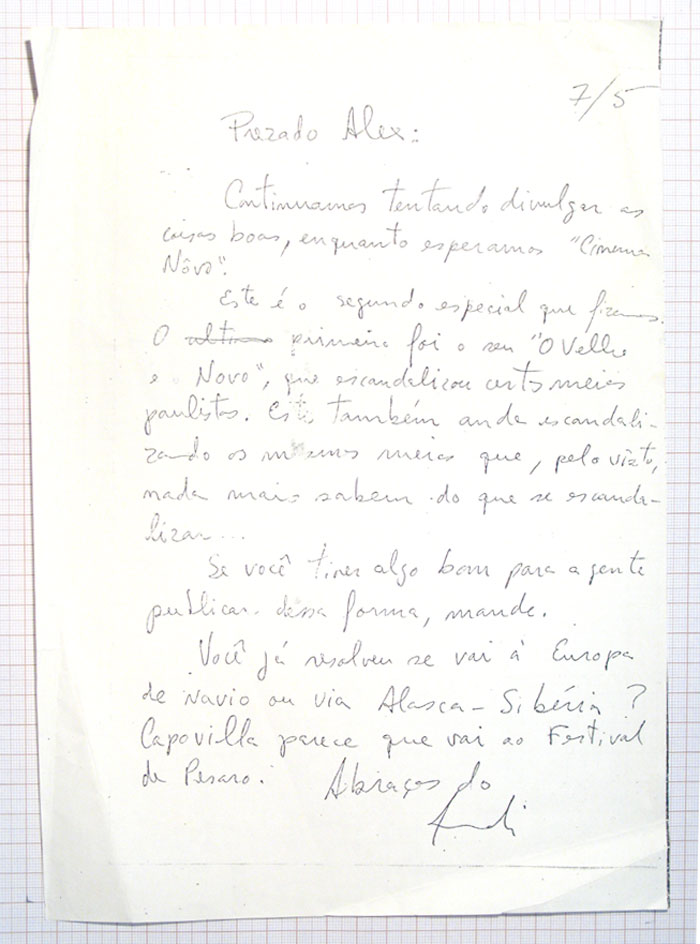 7/5
Prezado Alex:
Continuamos tentando divulgar as
coisas boas, enquanto esperamos "Cinema
Nôvo".
Este é o segundo especial que fizemos.
O ultimo primeiro foi o seu "O Velho
e o Novo", que escandalizou certos meios
paulistas. Este também anda escandali-
zando os mesmos meios que, pelo visto,
nada mais sabem do que se escanda-
lizar...
Se você tiver algo bom para a gente
publicar dessa forma, mande.
Você já resolveu se vai à Europa
de navio ou via Alasca-Sibéria?
Capovilla parece que vai ao Festival
de Pesaro.
Abraços do